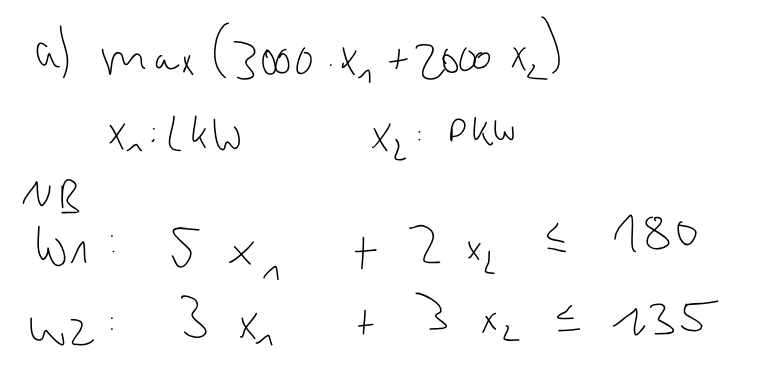 a) max (3000 · x₁ + 2000 x₂)
x₁ : LKW x₂ : PKW
NB
W1 : 5 x₁ + 2 x₂ ≤ 180
W2 : 3 x₁ + 3 x₂ ≤ 135